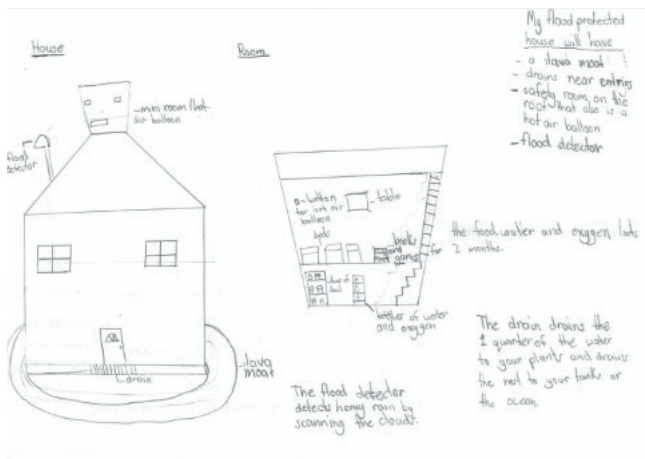 House
Room
My flood protected
house will have
- a lava moat!
- drains near entries
- safety room on the
roof that also is a
hot air balloon
- flood detector
- mini room / hot
air balloon
flood
detector
lava
moat
drain
button
for hot air
balloon
table
books
games
bottles of water
and oxygen
the food, water and oxygen lasts for
2 months.
The flood detector
detects heavy rain by
scanning the clouds.
The drain drains the
1 quarter of the water
to your plants and drains
the rest to your tanks or
the ocean.